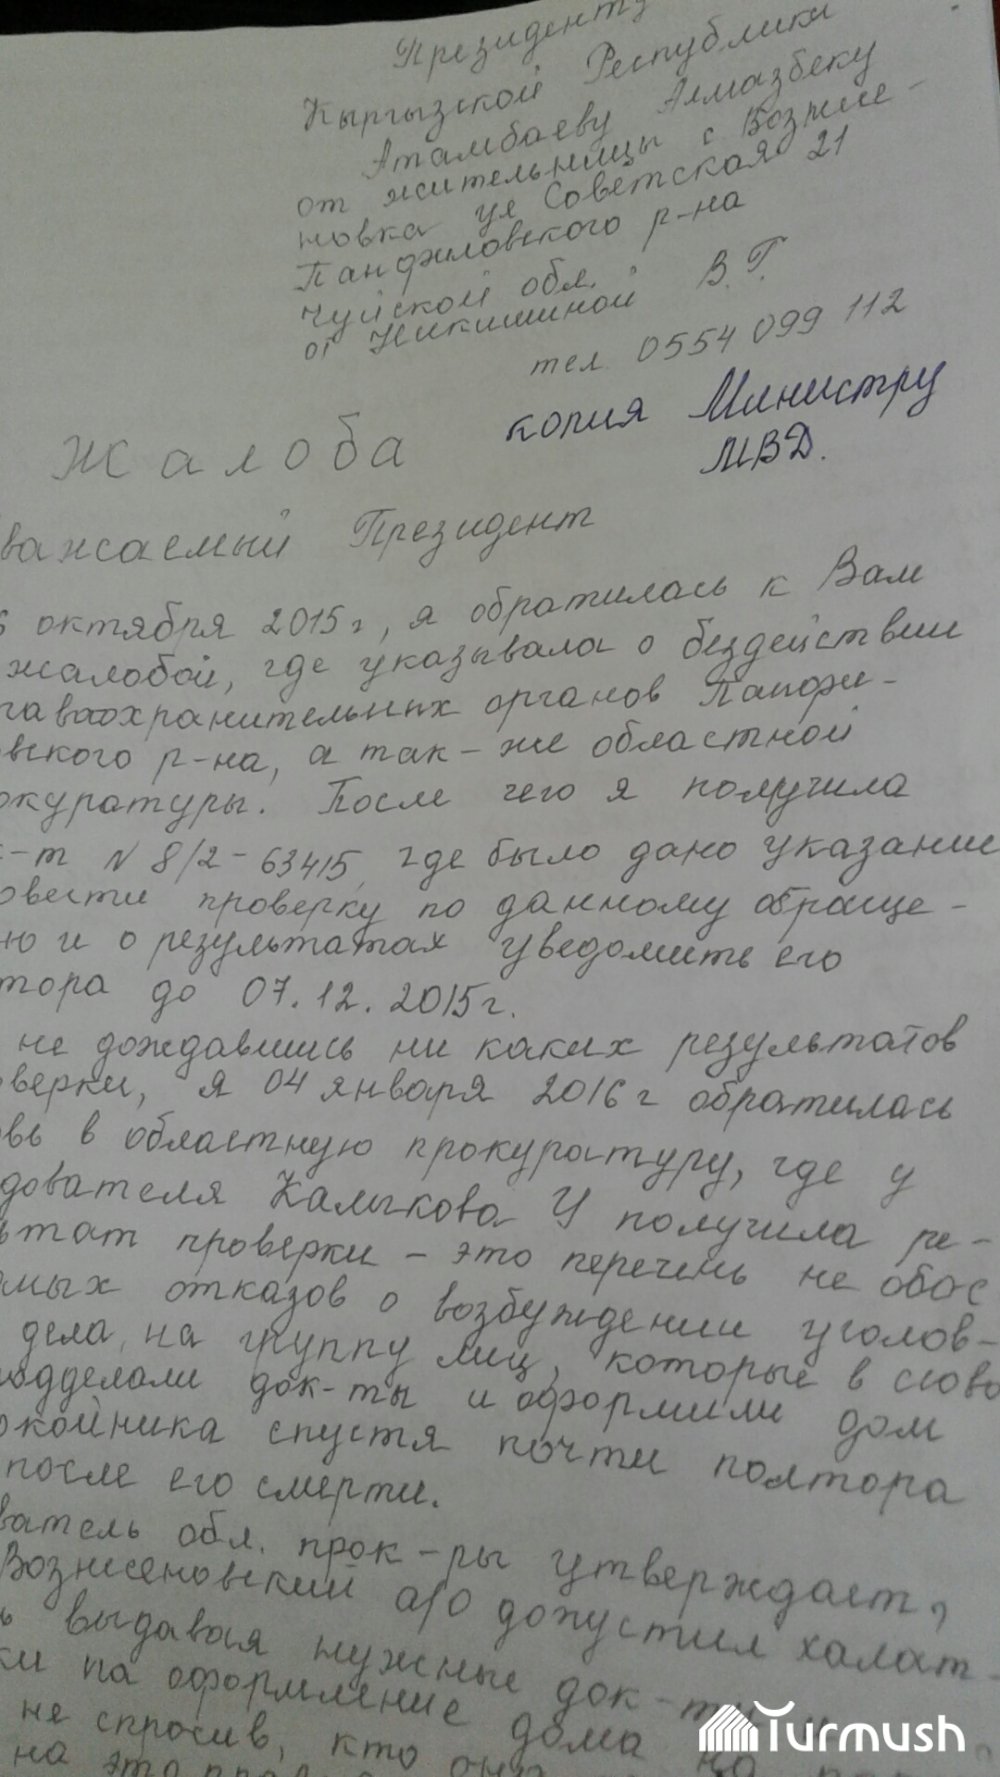 Президенту
Кыргызской Республики
Атамбаеву Алмазбеку
от жительницы с Возне-
новка ул Советская 21
Панфиловского р-на
Чуйской обл.
от Никишиной В.Г.
тел. 0554 099 112
копия Министру
МВД.
Жалоба
важаемый Президент
6 октября 2015г, я обратилась к Вам
жалобой, где указывала о бездействии
равоохранительных органов Панфи-
овского р-на, а так-же областной
окуратуры. После чего я получила
к-т N 8/2-63415, где было дано указание
овести проверку по данному обраще-
ню и о результатах уведомить его
тора до 07.12.2015г.
не дождавшись ни каких результатов
оверки, я 04 января 2016г обратилась
овь в областную прокуратуру, где у
дователя Калыкова У получила ре-
ьтат проверки - это перечень не обос
мых отказов о возбуждении уголов-
дела, на группу лиц, которые в сгово
подделали док-ты и оформили дом
окойника спустя почти полтора
после его смерти.
ватель обл. прок-ры утверждает,
Вознесеновский а/о допустил халат-
ь выдавая нужные док-ты и
ки на оформление дома на
не спросив, кто они
на это
Turmush